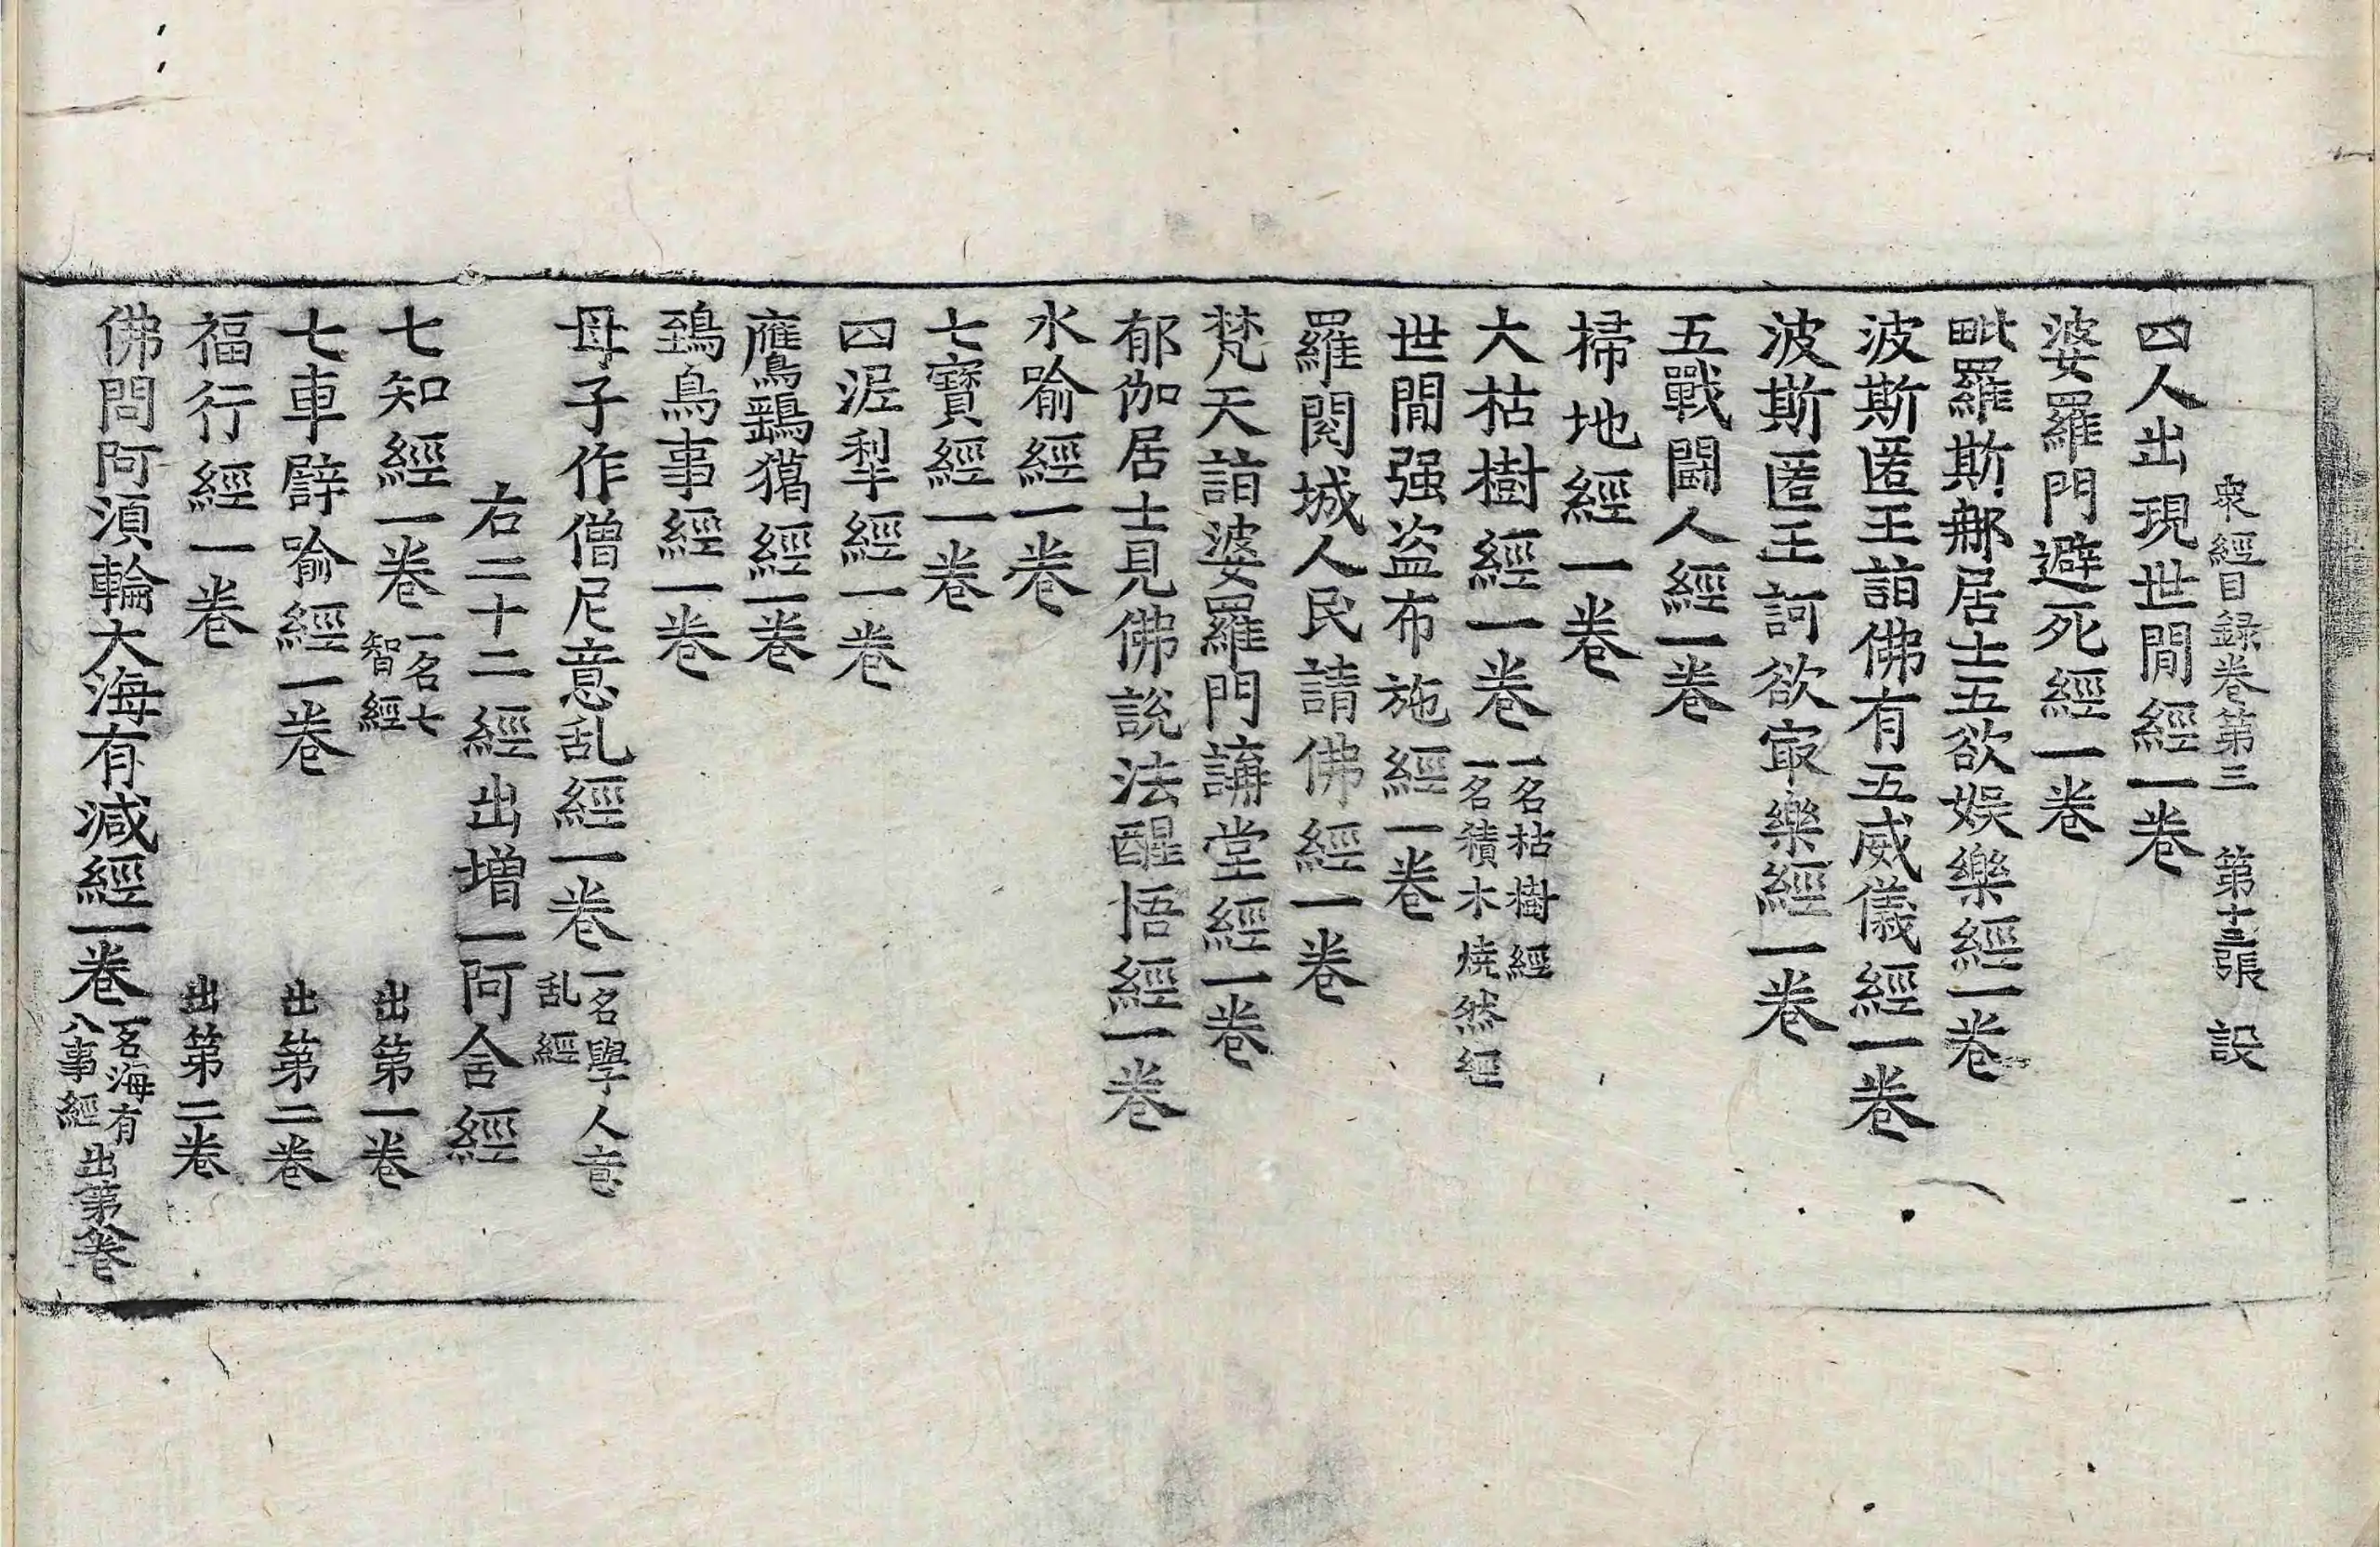 衆經目録卷第三　第十三張　設
四人出現世間經一卷
婆羅門避死經一卷
毗羅斯那居士五欲娛樂經一卷
波斯匿王詣佛有五威儀經一卷
波斯匿王訶欲㝡樂經一卷
五戰鬪人經一卷
掃地經一卷
大枯樹經一卷一名枯樹經一名積木燒然經
世間强盗布施經一卷
羅閱城人民請佛經一卷
梵天詣婆羅門講堂經一卷
郁伽居士見佛説法醒悟經一卷
水喻經一卷
七寶經一卷
四泥犁經一卷
鷹鷂獦經一卷
鵄鳥事經一卷
母子作僧尼意乱經一卷一名學人意乱經
右二十二經出增一阿含經
七知經一卷一名七智經　出第一卷
七車譬喻經一卷　出第二卷
福行經一卷　出第二卷
佛問阿須輪大海有減經一卷一名海有八事經　出第八卷